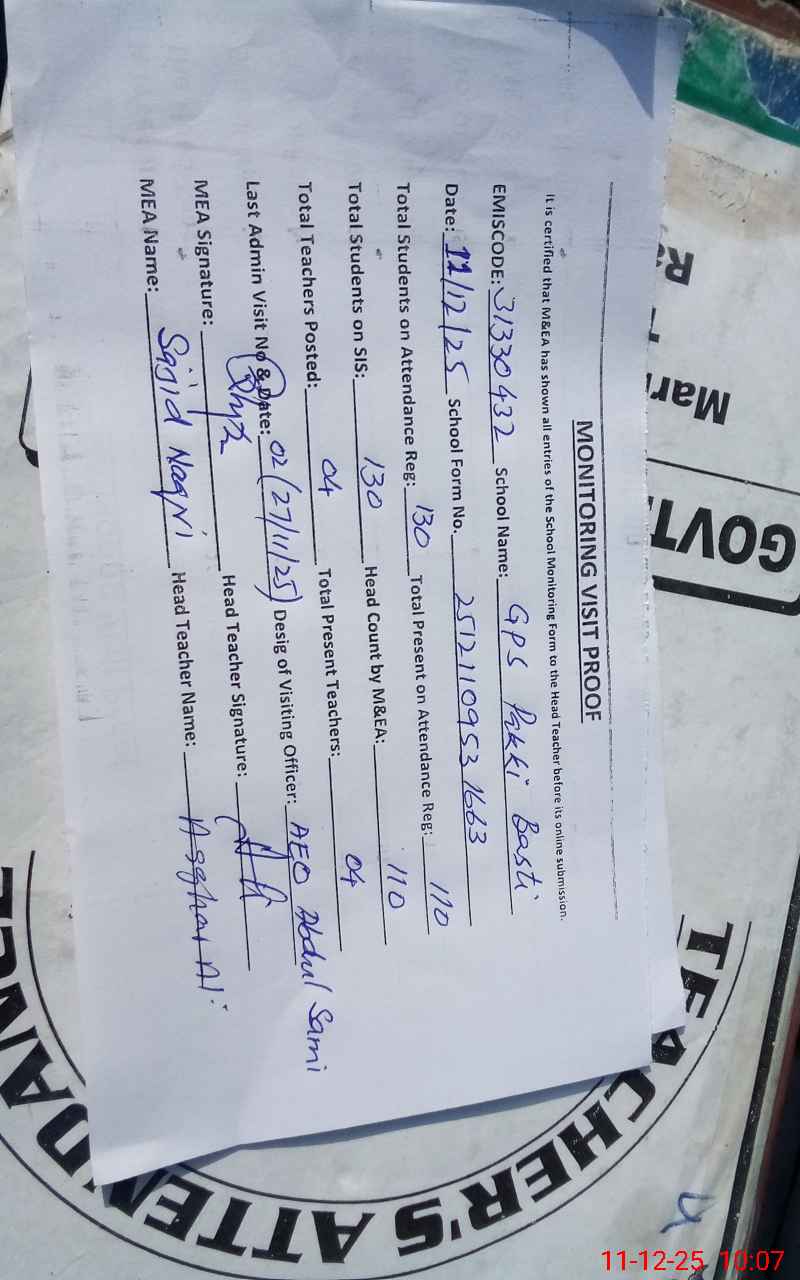 MONITORING VISIT PROOF
It is certified that M&EA has shown all entries of the School Monitoring Form to the Head Teacher before its online submission.
EMISCODE: 31330432 School Name: GPS Pakki Basti
Date: 11/12/25 School Form No. 25121109531663
Total Students on Attendance Reg: 130 Total Present on Attendance Reg: 110
Total Students on SIS: 130 Head Count by M&EA: 110
Total Teachers Posted: 04 Total Present Teachers: 04
Last Admin Visit No & Date: 02 (27/11/25) Desig of Visiting Officer: AEO Abdul Sami
MEA Signature: Head Teacher Signature:
MEA Name: Sajid Naqvi Head Teacher Name: Asghar Ali
GOVT
Mar
TEACHER'S ATTENDANCE
11-12-25 10:07